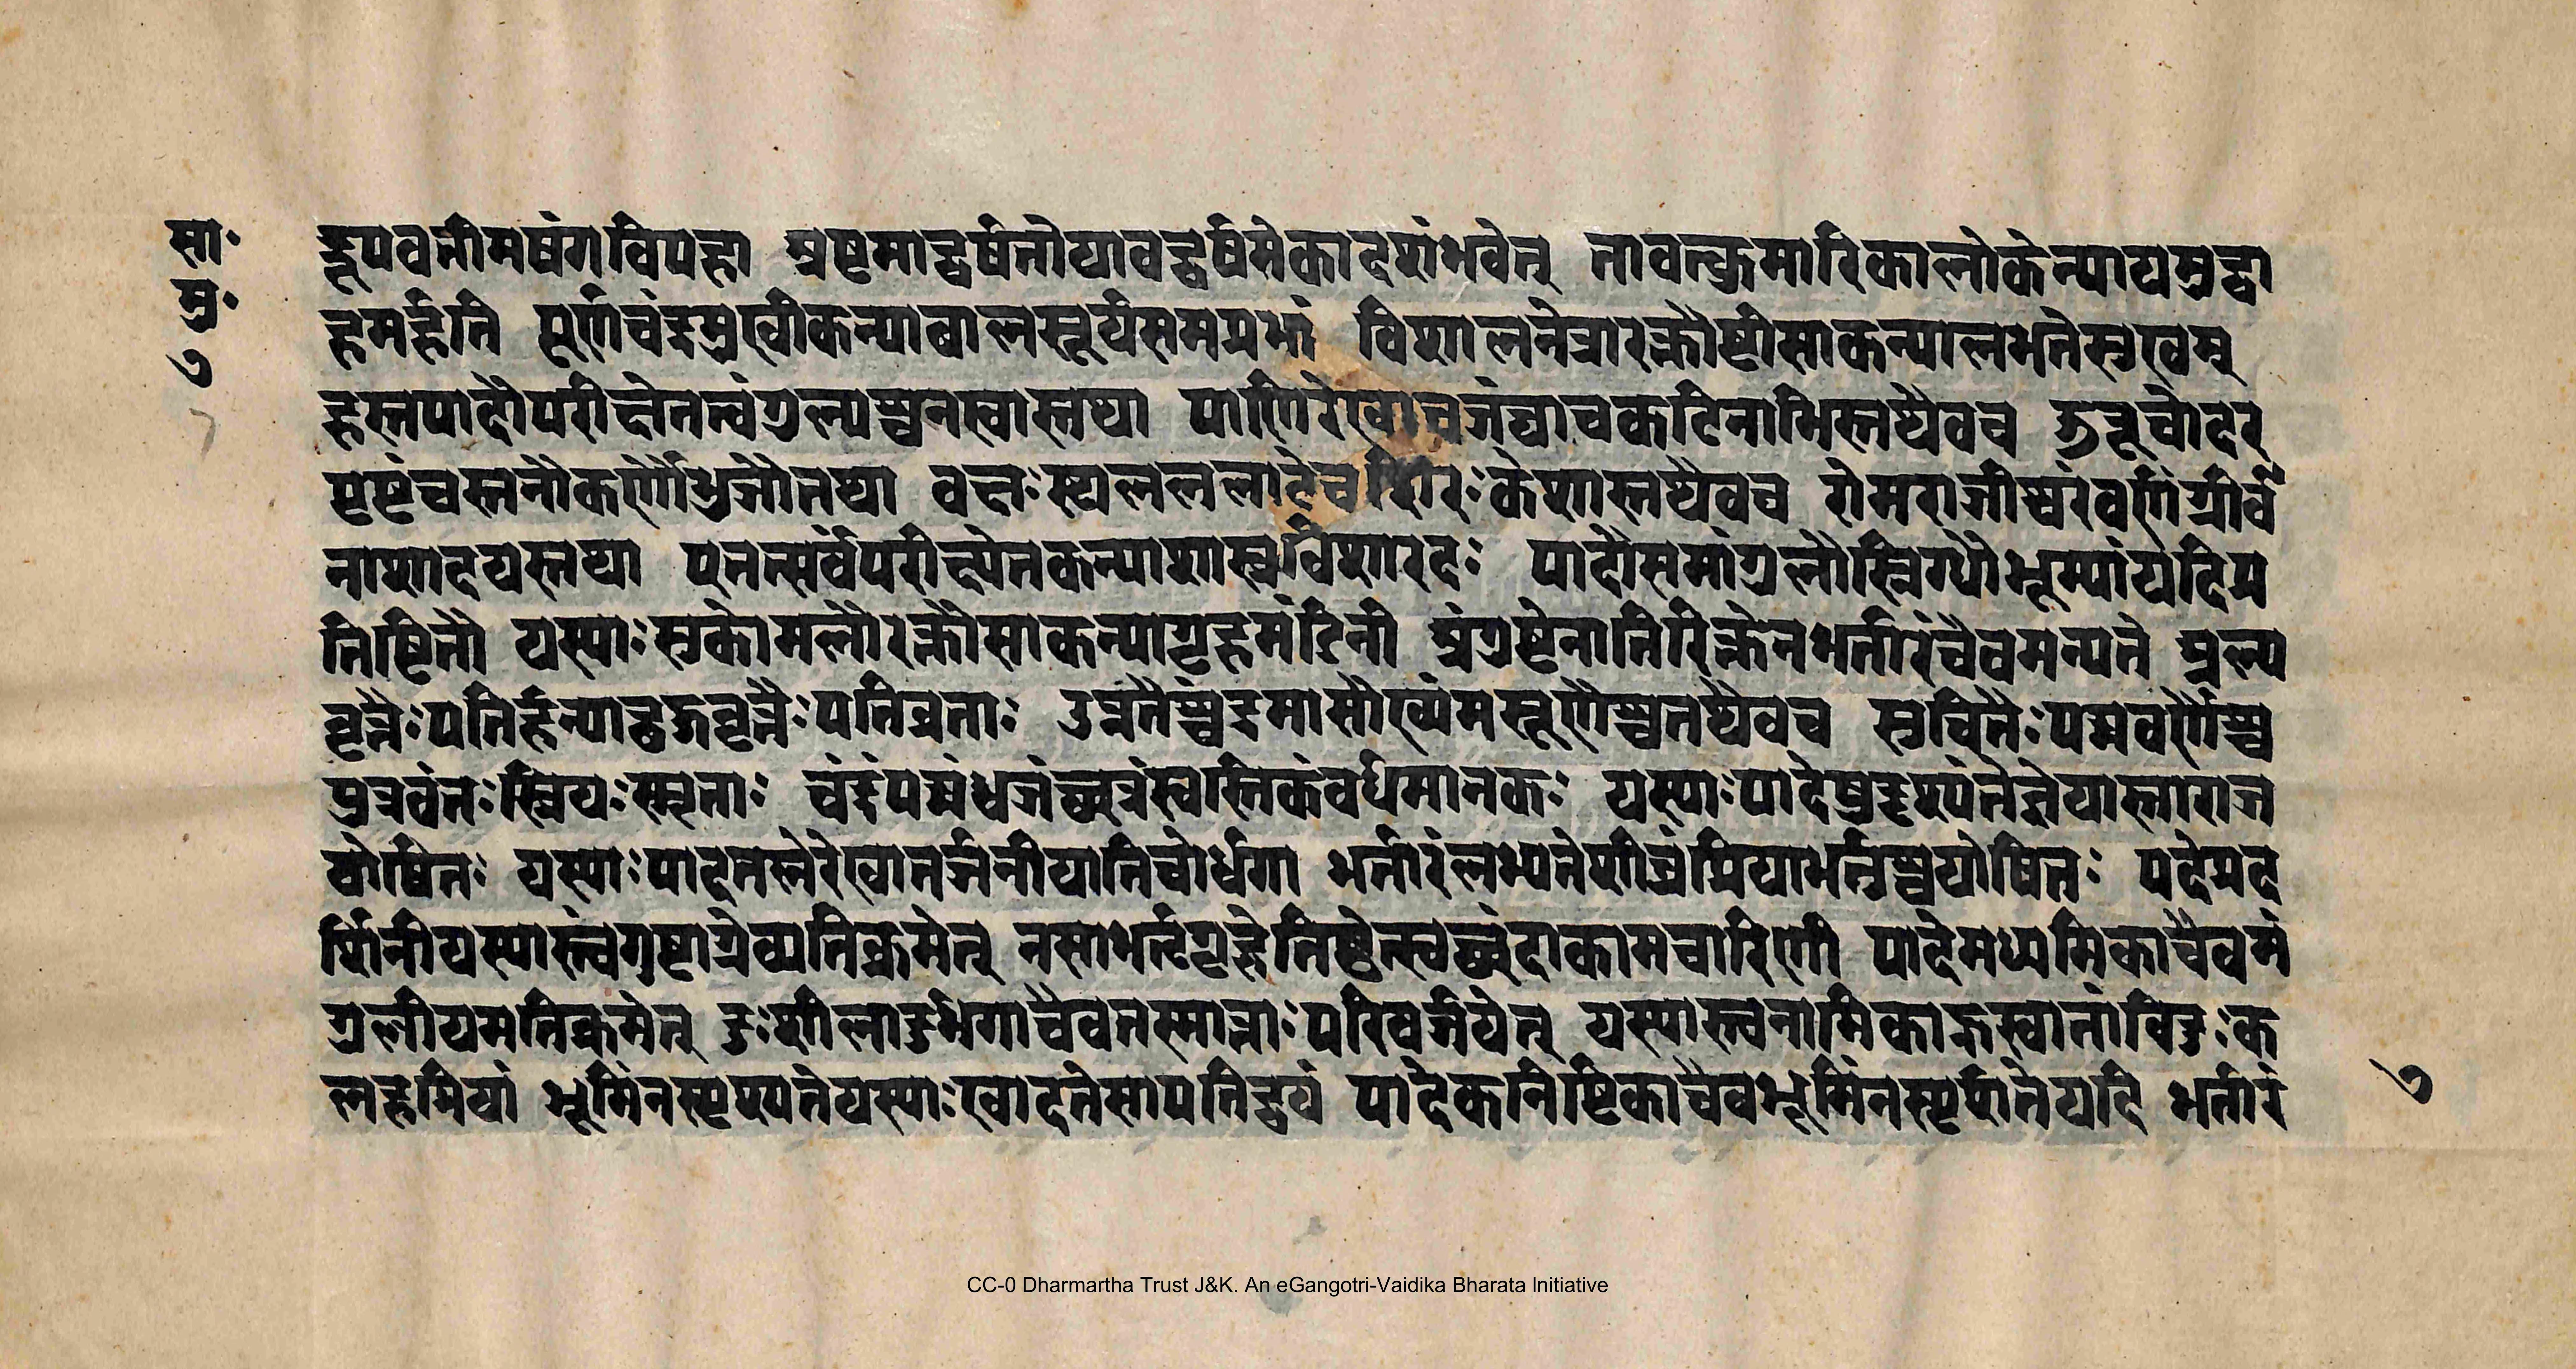 सा॰
मु॰
७
द्रूपवतीमषंगविपह्ना अष्टमाद्वर्षतोयावद्वर्षमेकादशंभवेत् तावत्कुमारिकालोकेन्यायमुद्वा
हमर्हति पूर्णचंद्रमुखीकन्याबालसूर्यसमप्रभां विशालनेत्रारक्तौष्टीसाकन्यालभतेसुखम्
हस्तपादौपरीक्षेतत्वंगुल्यश्चनखास्तथा पाणिरेखाचजंघाचकटिनाभिस्तथैवच ऊरूचोदर
पृष्टंचस्तनौकर्णौभुजौतथा वक्षःस्थलललाटेचशिरःकेशास्तथैवच रोमराजीस्वरंवर्णग्रीवं
नाशादयस्तथा पुनत्सर्वंपरीक्ष्येतकन्याशास्त्रविशारदः पादौसमांगुलौस्निग्धौभूम्यांयदिप्र
तिष्टितौ यस्याःसुकोमलौरक्तौसाकन्यागृहमंदिनी अंगुष्टेनातिरिक्तेनभर्तारंचैवमन्यते मुल्य
वृत्तैःपतिर्हन्यादृजवृत्तैःपतिव्रताः उन्नतैश्चंद्रमासौख्यंमसूणैश्चतथैवच सुवितैःपद्मवर्णैश्च
पुत्रवंतःस्त्रियःस्मृताः चंद्रंपद्मंध्वजंच्छत्रंस्वस्तिकंवर्धमानकः यस्याःपादेषुदृश्यंतेज्ञेयास्ताराज
योषितः यस्याःपादतलेरेखातर्जनीयातिचोर्धगा भर्तारंलभ्यतेशीघ्रंप्रियाभर्तुश्चयोषितः पदेप्रद
र्शिनीयस्यास्त्वंगुष्टाग्रेव्यतिक्रमेत् नसाभर्तृगृहेतिष्ठेत्स्वच्छंदाकामचारिणी पादेमध्यमिकाचैवमं
गुलीयमतिक्रमेत् दुःशीलादुर्भगाचैवतस्मात्ताःपरिवर्जयेत् यस्यास्त्वनामिकाह्रस्वातांविदुःक
लहप्रियां भूमिंनस्पृश्यतेयस्याःखादतेसापतिद्वयं पादेकनिष्टिकाचैवभूमिंनस्पृर्शतेयदि भर्तारं
७
CC-0 Dharmartha Trust J&K. An eGangotri-Vaidika Bharata Initiative